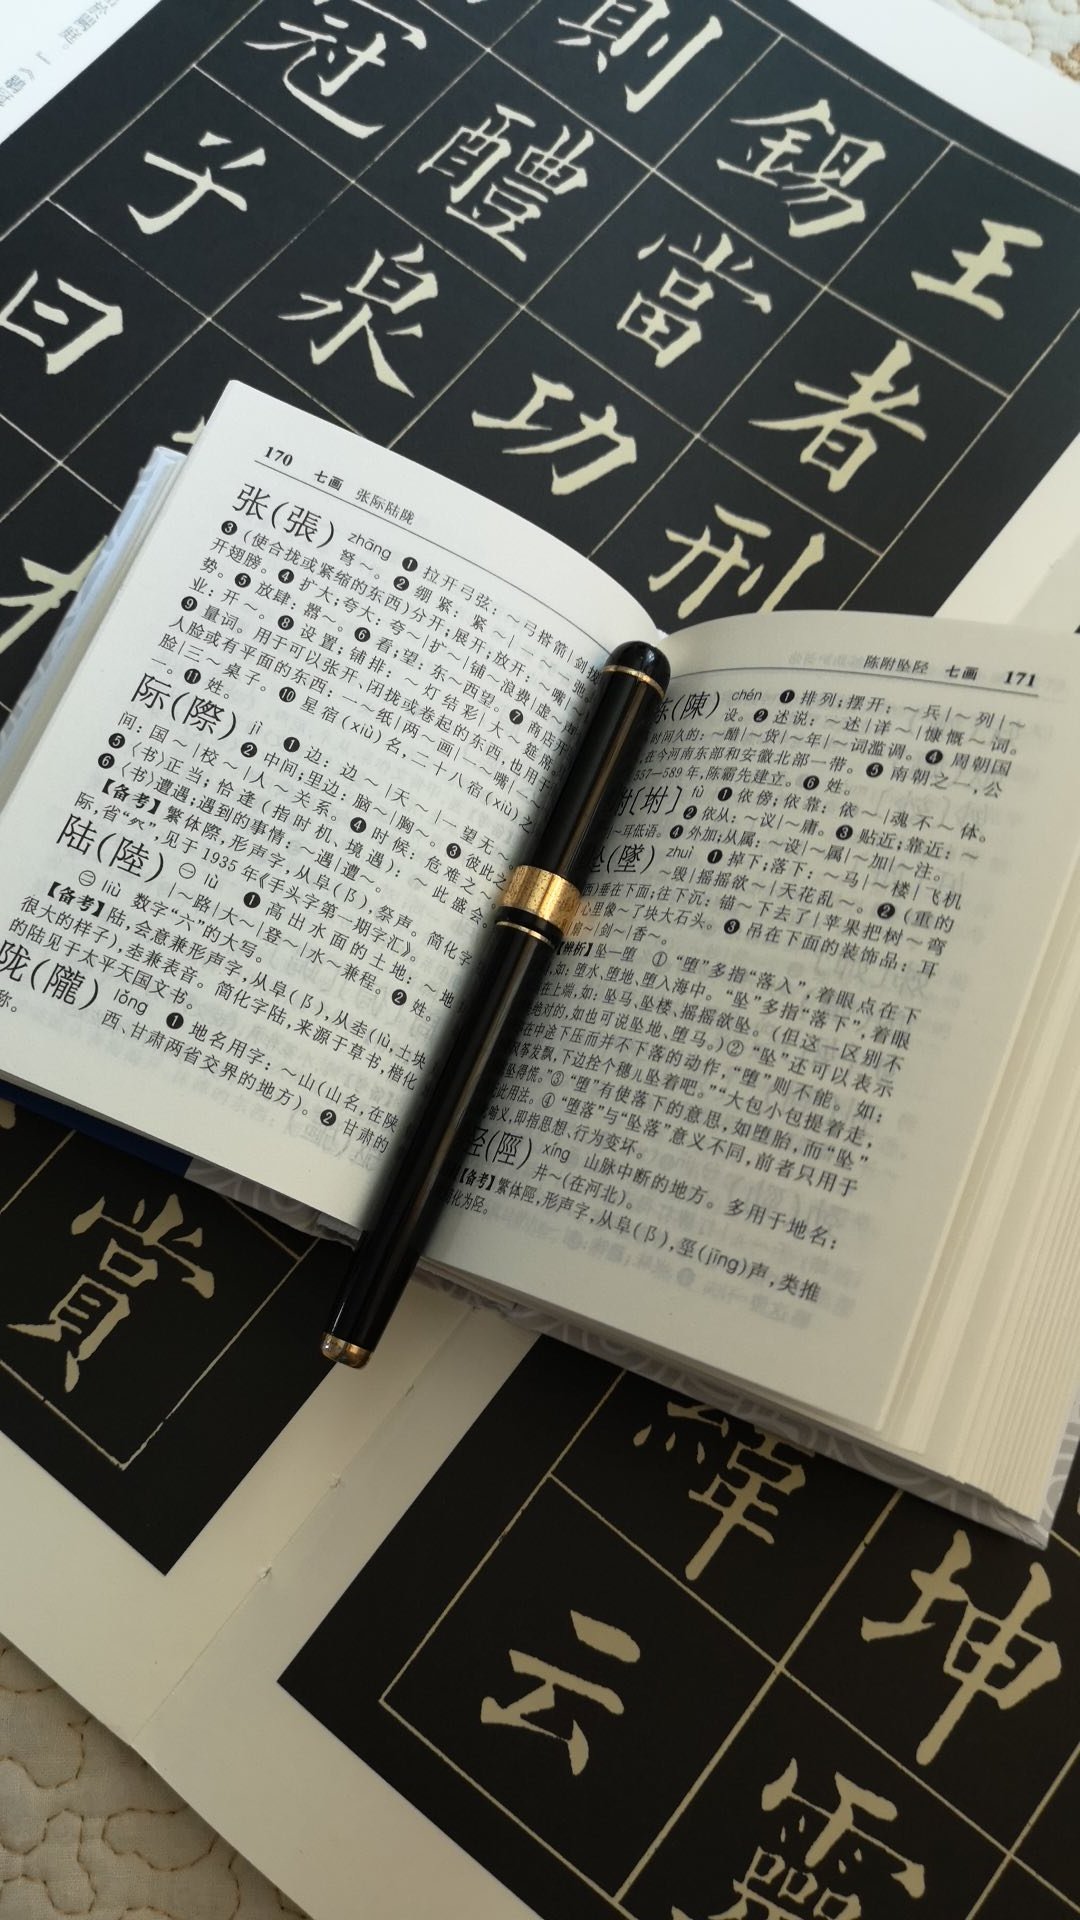 則
冠
錫
醴
王
子
當
泉
者
曰
功
刑
170 七画 张际陆陇
张(張) zhāng ❶ 拉开弓弦：～弓搭箭|剑拔
弩～。❷ 绷紧：紧～|一～一弛。
❸ (使合拢或紧缩的东西)分开；展开；放开：～嘴|
开翅膀。❹ 扩大；夸大：夸～|扩～|铺～浪费|虚～声
势。❺ 放肆：嚣～。❻ 看；望：东～西望。❼ 商店开
业：开～。❽ 设置；铺排：～灯结彩|大～筵席。
❾ 量词。用于可以张开、闭拢或卷起的东西，也用于
人脸或有平面的东西：一～纸|两～画|一～嘴|一～
脸|三～桌子。❿ 星宿(xiù)名，二十八宿(xiù)之
一。⓫ 姓。
际(際) jì ❶ 边：边～|天～|一望无～。
❷ 中间；里边：脑～|胸～。❸ 彼此之
间：国～|校～|人～关系。❹ 时候：危难之～。
❺〈书〉正当；恰逢(指时机、境遇)：～此盛会。
❻〈书〉遭遇；遇到的事情：～遇|遭～。
【备考】繁体際，形声字，从阜(阝)，祭声。简化字
际，省“癶”，见于1935年《手头字第一期字汇》。
陆(陸) ㊀ lù ❶ 高出水面的土地：～地
|～路|大～|登～|水～兼程。❷ 姓。
㊁ liù 数字“六”的大写。
【备考】陆，会意兼形声字，从阜(阝)，从坴(lù，土块
很大的样子)，坴兼表音。简化字陆，来源于草书，楷化
的陆见于太平天国文书。
陇(隴) lǒng ❶ 地名用字：～山(山名，在陕
西、甘肃两省交界的地方)。❷ 甘肃的
称。
陈附坠陉 七画 171
陈(陳) chén ❶ 排列；摆开：～兵|～列|～
设。❷ 述说：～述|详～|慷慨～词。
时间久的：～醋|～货|～年|～词滥调。❹ 周朝国
，在今河南东部和安徽北部一带。❺ 南朝之一，公
557—589年，陈霸先建立。❻ 姓。
附[坿] fù ❶ 依傍；依靠：依～|魂不～体。
❷ 依从：～议|～庸。❸ 贴近；靠近：～
|～耳低语。❹ 外加；从属：～设|～属|～加|～注。
坠(墜) zhuì ❶ 掉下；落下：～马|～楼|飞机
～毁|摇摇欲～|天花乱～。❷ (重的
西)垂在下面；往下沉：锚～下去了|苹果把树～弯
心里像～了块大石头。❸ 吊在下面的装饰品：耳
扇～|剑～|香～。
【辨析】坠—堕 ①“堕”多指“落入”，着眼点在下
，如：堕水、堕地、堕入海中。“坠”多指“落下”，着眼
在上端，如：坠马、坠楼、摇摇欲坠。(但这一区别不
绝对的，如也可说坠地、堕马。)②“坠”还可以表示
在中途下压而并不下落的动作，“堕”则不能。如：
风筝发飘，下边拴个穗儿坠着吧。”“大包小包提着走，
坠得慌。”③“堕”有使落下的意思，如堕胎，而“坠”
无此用法。④“堕落”与“坠落”意义不同，前者只用于
喻义，即指思想、行为变坏。
陉(陘) xíng 山脉中断的地方。多用于地名：
井～(在河北)。
【备考】繁体陘，形声字，从阜(阝)，巠(jīng)声，类推
简化为陉。
賞
緯
云
坤
靈